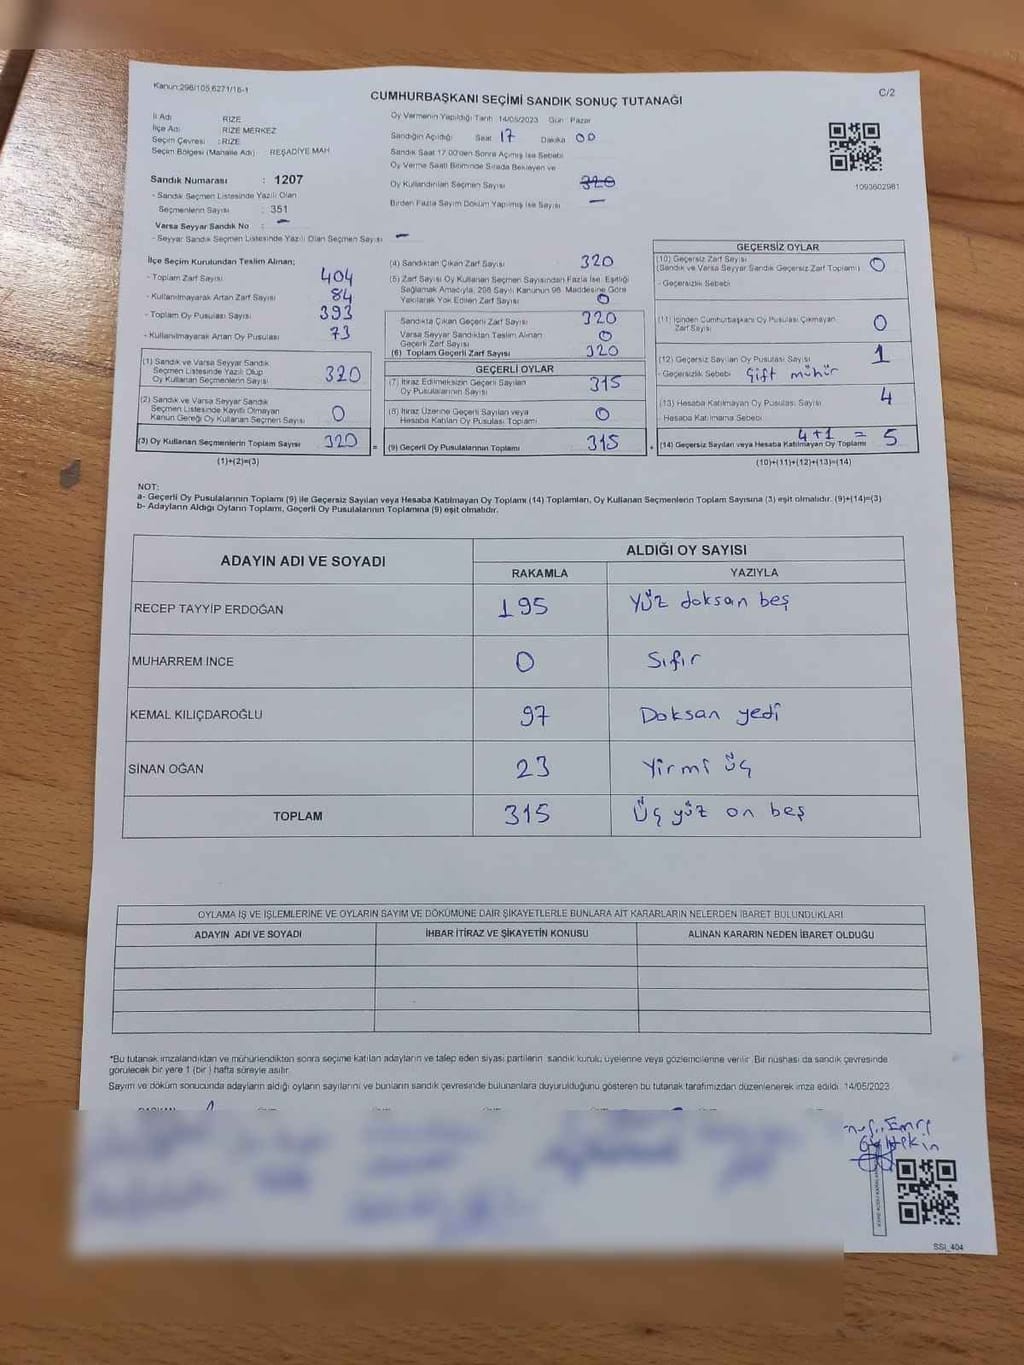 Kanun:298/105,6271/16-1
C/2
CUMHURBAŞKANI SEÇİMİ SANDIK SONUÇ TUTANAĞI
İli Adı : RİZE
İlçe Adı : RİZE MERKEZ
Seçim Çevresi : RİZE
Seçim Bölgesi (Mahalle Adı) : REŞADİYE MAH.
Sandık Numarası : 1207
- Sandık Seçmen Listesinde Yazılı Olan
Seçmenlerin Sayısı : 351
Varsa Seyyar Sandık No : -
- Seyyar Sandık Seçmen Listesinde Yazılı Olan Seçmen Sayısı : -
Oy Vermenin Yapıldığı Tarih 14/05/2023 Gün Pazar
Sandığın Açıldığı Saat 17 Dakika 00
Sandık Saat 17.00'den Sonra Açılmış İse Sebebi
Oy Verme Saati Bitiminde Sırada Bekleyen ve
Oy Kullandırılan Seçmen Sayısı 320
Birden Fazla Sayım Döküm Yapılmış İse Sayısı -
1093602981
İlçe Seçim Kurulundan Teslim Alınan;
- Toplam Zarf Sayısı 404
- Kullanılmayarak Artan Zarf Sayısı 84
- Toplam Oy Pusulası Sayısı 393
- Kullanılmayarak Artan Oy Pusulası 73
(1) Sandık ve Varsa Seyyar Sandık
Seçmen Listesinde Yazılı Olup
Oy Kullanan Seçmenlerin Sayısı 320
(2) Sandık ve Varsa Seyyar Sandık
Seçmen Listesinde Kayıtlı Olmayan
Kanun Gereği Oy Kullanan Seçmen Sayısı 0
(3) Oy Kullanan Seçmenlerin Toplam Sayısı 320 =
(1)+(2)=(3)
(4) Sandıktan Çıkan Zarf Sayısı 320
(5) Zarf Sayısı Oy Kullanan Seçmen Sayısından Fazla İse, Eşitliği
Sağlamak Amacıyla, 298 Sayılı Kanunun 98. Maddesine Göre
Yakılarak Yok Edilen Zarf Sayısı 0
Sandıkta Çıkan Geçerli Zarf Sayısı 320
Varsa Seyyar Sandıktan Teslim Alınan
Geçerli Zarf Sayısı 0
(6) Toplam Geçerli Zarf Sayısı 320
GEÇERLİ OYLAR
(7) İtiraz Edilmeksizin Geçerli Sayılan
Oy Pusulalarının Sayısı 315
(8) İtiraz Üzerine Geçerli Sayılan veya
Hesaba Katılan Oy Pusulaları Toplamı 0
(9) Geçerli Oy Pusulalarının Toplamı 315 +
GEÇERSİZ OYLAR
(10) Geçersiz Zarf Sayısı
(Sandık ve Varsa Seyyar Sandık Geçersiz Zarf Toplamı) 0
- Geçersizlik Sebebi
(11) İçinden Cumhurbaşkanı Oy Pusulası Çıkmayan
Zarf Sayısı 0
(12) Geçersiz Sayılan Oy Pusulası Sayısı 1
- Geçersizlik Sebebi Çift mühür
(13) Hesaba Katılmayan Oy Pusulası Sayısı 4
Hesaba Katılmama Sebebi
4+1 = 5
(14) Geçersiz Sayılan veya Hesaba Katılmayan Oy Toplamı
(10)+(11)+(12)+(13)=(14)
NOT:
a- Geçerli Oy Pusulalarının Toplamı (9) ile Geçersiz Sayılan veya Hesaba Katılmayan Oy Toplamı (14) Toplamları, Oy Kullanan Seçmenlerin Toplam Sayısına (3) eşit olmalıdır. (9)+(14)=(3)
b- Adayların Aldığı Oyların Toplamı, Geçerli Oy Pusulalarının Toplamına (9) eşit olmalıdır.
ADAYIN ADI VE SOYADI
ALDIĞI OY SAYISI
RAKAMLA YAZIYLA
RECEP TAYYİP ERDOĞAN 195 Yüz doksan beş
MUHARREM İNCE 0 Sıfır
KEMAL KILIÇDAROĞLU 97 Doksan yedi
SİNAN OĞAN 23 Yirmi üç
TOPLAM 315 Üç yüz on beş
OYLAMA İŞ VE İŞLEMLERİNE VE OYLARIN SAYIM VE DÖKÜMÜNE DAİR ŞİKAYETLERLE BUNLARA AİT KARARLARIN NELERDEN İBARET BULUNDUKLARI
ADAYIN ADI VE SOYADI İHBAR İTİRAZ VE ŞİKAYETİN KONUSU ALINAN KARARIN NEDEN İBARET OLDUĞU
*Bu tutanak imzalandıktan ve mühürlendikten sonra seçime katılan adayların ve talep eden siyasi partilerin sandık kurulu üyelerine veya gözlemcilerine verilir. Bir nüshası da sandık çevresinde
görülecek bir yere 1 (bir ) hafta süreyle asılır.
Sayım ve döküm sonucunda adayların aldığı oyların sayılarını ve bunların sandık çevresinde bulunanlara duyurulduğunu gösteren bu tutanak tarafımızdan düzenlenerek imza edildi. 14/05/2023
Emre
SSİ_404